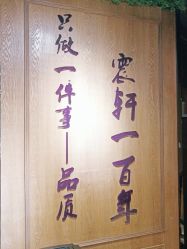 震轩一百年
只做一件事—品质